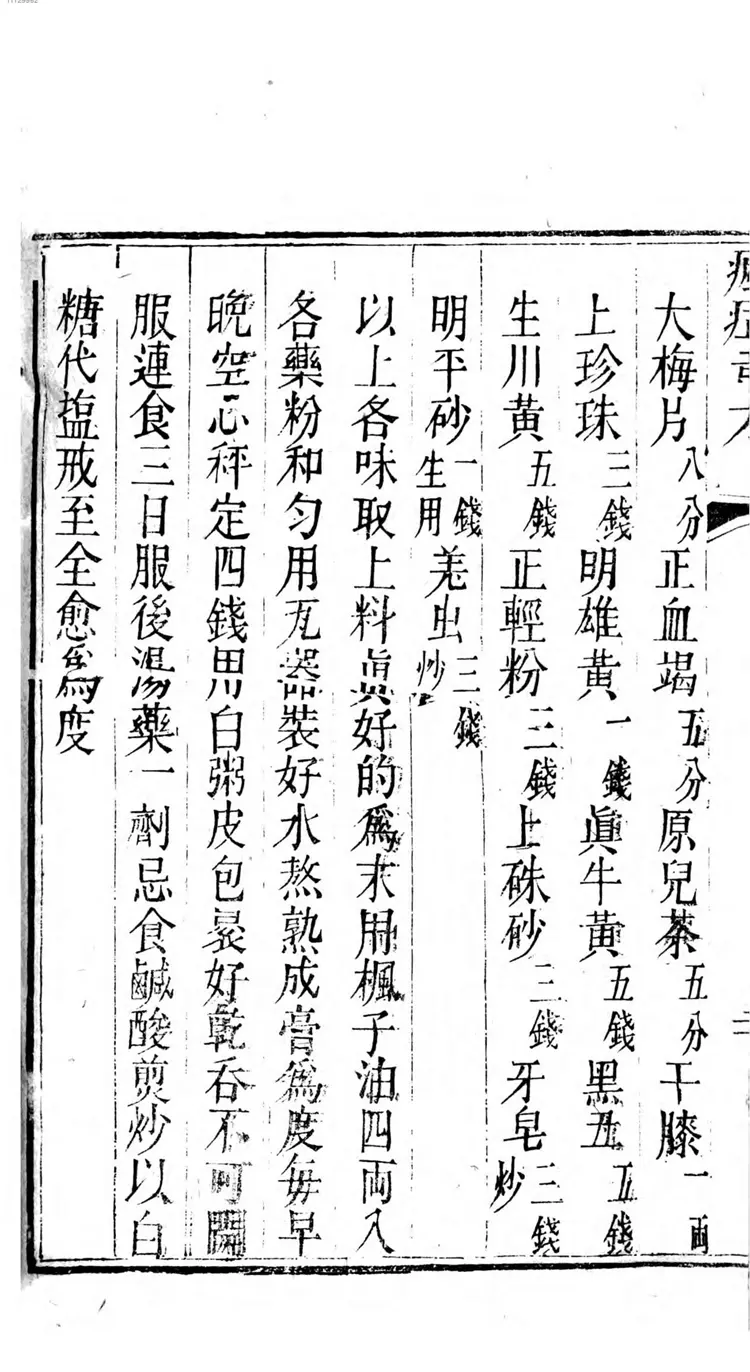 大梅片八分 正血竭五分 原兒茶五分 干膝一両
上珍珠三錢 明雄黃一錢 眞牛黃五錢 黑丑五錢
生川黃五錢 正輕粉三錢 上硃砂三錢 牙皂三錢炒
明平砂一錢生用 羌虫三錢炒
以上各味取上料眞好的爲末用楓子油四両入
各藥粉和匀用瓦器裝好水熬熟成膏爲度每早
晩空心秤定四錢用白粥皮包褁好乾吞不可開
服連食三日服後湯藥一劑忌食鹹酸煎炒以白
糖代塩戒至全愈爲度